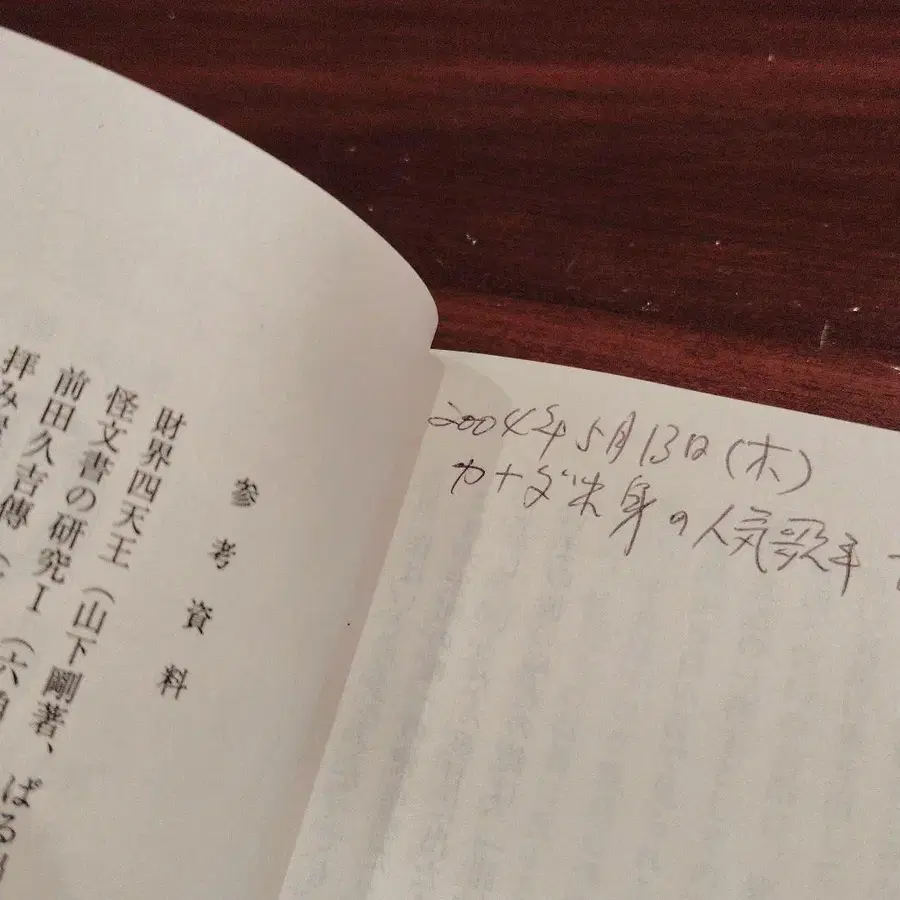 参考資料
財界四天王（山下剛著、ぱる
怪文書の研究Ⅰ（六角
前田久吉傳（
拝み
2004年5月13日(木)
カナダ出身の人気歌手